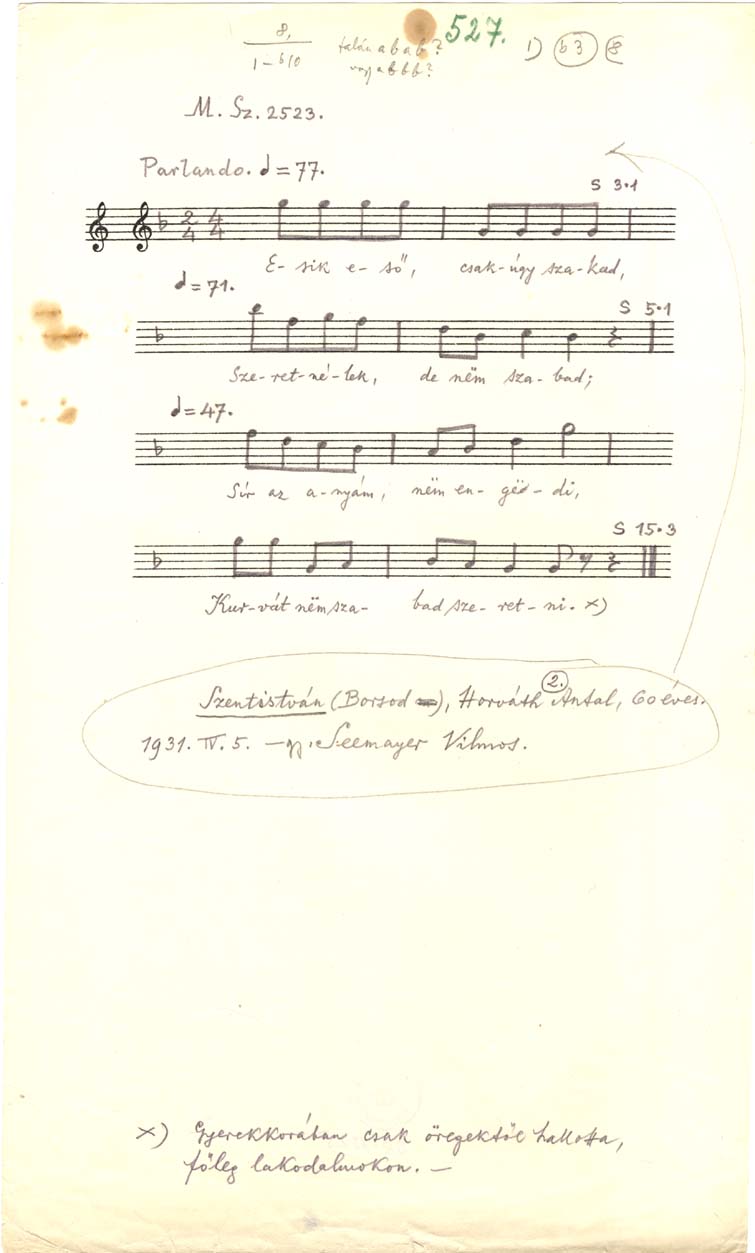 8,
1-b10
talán abab?
vagy abbb?
527.
1) b3 8
M. Sz. 2523.
Parlando. = 77.
S 3·1
2 4
4 4
E- sik e- ső, csak-úgy sza-kad,
= 71.
S 5·1
Sze-ret-né-lek, de nëm sza- bad;
= 47.
Sír az a-nyám, nëm en- gëd- di,
S 15·3
Kur-vát nëm sza- bad sze- ret- ni. x)
2.
Szentistván (Borsod), Horváth Antal, 60 éves.
1931. IV. 5. — gy. Seemayer Vilmos.
x) Gyerekkorában csak öregektől hallotta,
főleg lakodalmokon. —